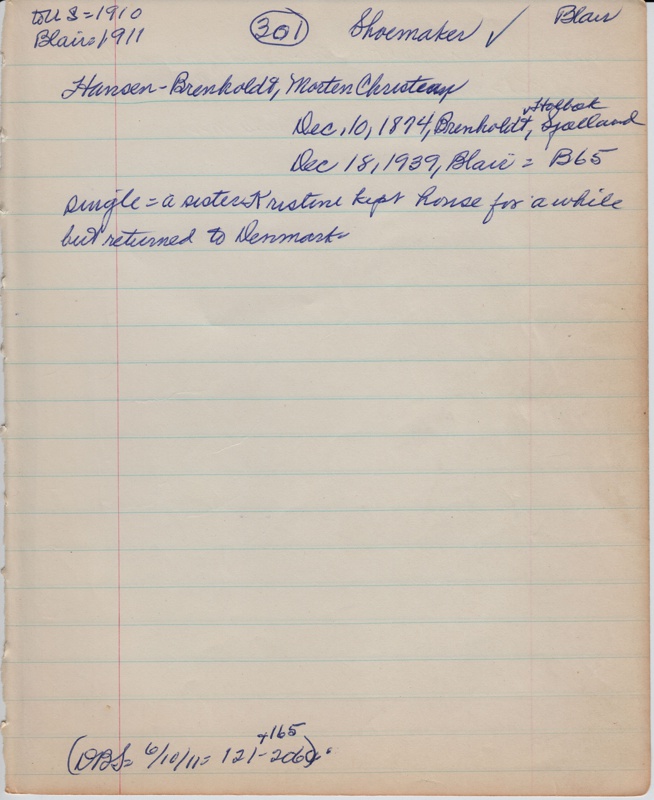 to U S = 1910
Blair = 1911
301
Shoemaker ✓
Blair
Hansen-Brenholdt, Morten Christean
Dec, 10, 1874, Brenholdt, Holbak, Sjælland
Dec 18, 1939, Blair = B65
single = a sister Kristine kept house for a while
but returned to Denmark =
+165
(DBS = 6/10/11 = 121-206)